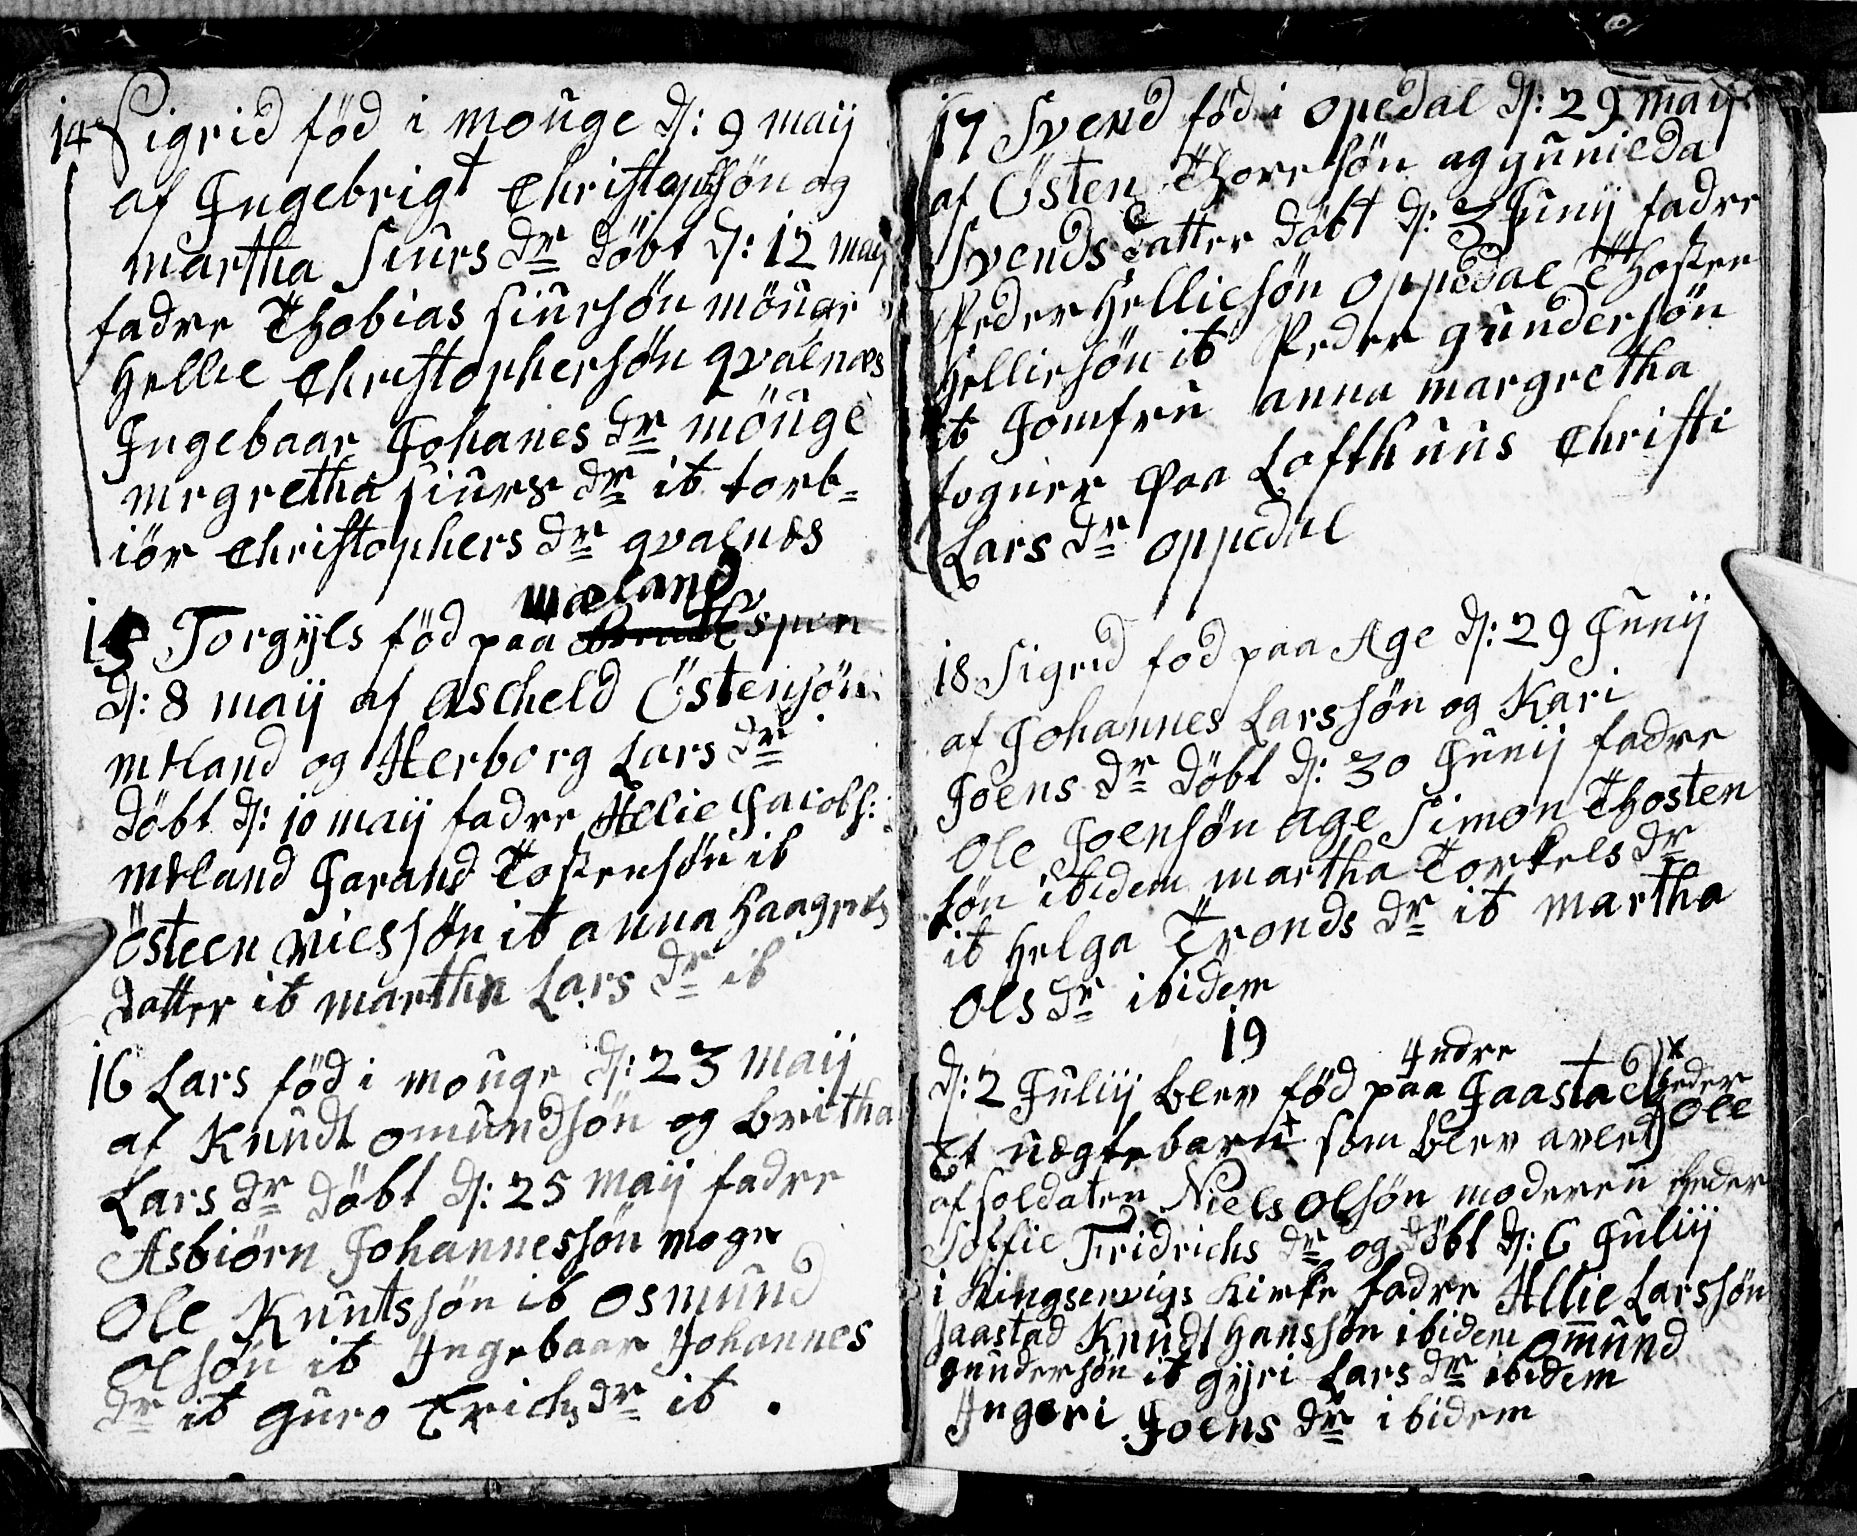 14 Sigrid föd i mouge d: 9 maij
af Ingebrigt Christophsön og
martha siurs dr döbt d: 12 maij
fadre Thobias siursön möuge
Hellie Christophersön qvalnæs
Ingebaar Johanes dr möuge
mrgretha siurs dr ib torb=
iör Christophers dr qvalnæs
mæland
15 Torgyls föd paa Espen
d: 8 maij af Ascheld Östensön
mæland og Herborg Lars dr
döbt d: 10 maij fadre Hellie Jacobs:
mæland Jarand Tostensön ib
östeen nielssön ib anna Haagens
datter ib martha Lars dr ib
16 Lars föd i mouge d: 23 maij
af Knudt omundsön og britha
Lars dr döbt d: 25 maij fadre
Asbiörn Johannessön moge
Ole Knutssön ib osmund
olsön ib Ingebaar Johannes
dr ib guro Erichs dr ib
17 Svend föd i opedal d: 29 maij
af Östen Thoresön og gunilda
Svends datter döbt d: 3 Junij fadre
Peder Helliesön Oppedal Thosten
Helliesön ib Peder gundersön
ib Jomfru anna margretha
paa Lofthuus Christi
Lars dr oppedal
18 Sigrid fod paa Age d: 29 Junij
af Johannes Larssön og Kari
Joens dr döbt d: 30 Junij fadre
Ole Joensön age Simon Thosten
sön ibidem martha Torkels dr
ib Helga Tronds dr ib martha
Ols dr ibidem
19
d: 2 Julij blev föd paa Indre Jaastad
Et uægte barn som blev avled Ole
af soldaten Niels olsön moderen
Solfie Fridrichs dr og döbt d: 6 Julij
i Kingservigs Kirke fadre Hellie Larssön
Jaastad Knudt Hanssön ibidem omund
gundersön ib gyri Lars dr ibidem
Ingeri Joens dr ibidem